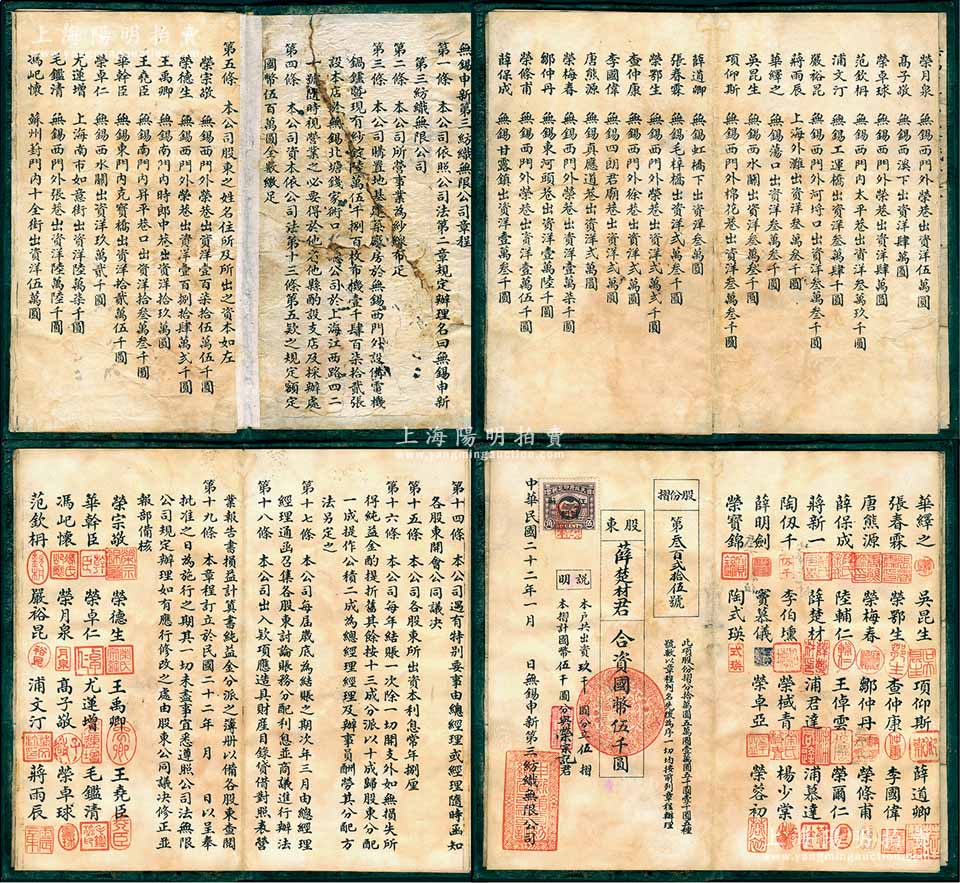 上海陽明拍賣
www.yangmingauction.com
無錫申新第三紡織無限公司章程
第一條　本公司依照公司法第二章規定辦理名曰無錫申新
第三紡織無限公司
第二條　本公司所營事業為紗線布疋
第三條　本公司購置地基建築廠房於無錫西門外設備電機
鍋鑪暨現有紗錠陸萬伍千捌百枚布機壹千肆百柒拾貳張
設本店於無錫北塘錢家衖口
公司於上海江西路四二
一號隨時視營業之必要得於他省他縣酌設支店及採辦處
第四條　本公司資本依公司法第十三條第五欵之規定額定
國幣伍百萬圓全數繳足
第五條　本公司股東之姓名住所及所出之資本如左
榮宗敬　無錫西門外榮巷出資洋壹百柒拾伍萬伍千圓
榮德生　無錫西門外榮巷出資洋壹百捌拾肆萬弍千圓
王禹卿　無錫南門內時郎中巷出資洋拾玖萬圓
王堯臣　無錫南門內昇平巷口出資洋拾叁萬叁千圓
華幹臣　無錫東門內克寶橋出資洋拾貳萬伍千圓
榮卓仁　無錫西水關出資洋玖萬貳千圓
尤蓮增　上海南市如意街出資洋陸萬柒千圓
毛鑑清　無錫西門外張巷出資洋陸萬陸千圓
馮屺懷　蘇州葑門內十全街出資洋伍萬圓
榮月泉　無錫西門外榮巷出資洋伍萬圓
高子敬　無錫西溪下出資洋肆萬圓
榮卓球　無錫西門外榮巷出資洋肆萬圓
范欽枬　無錫工運橋出資洋叁萬肆千圓
浦文汀　無錫西門內太平巷出資洋叁萬玖千圓
嚴裕昆　無錫西門外河埒口出資洋叁萬叁千圓
蔣雨辰　上海外灘出資洋叁萬圓
華繹之　無錫蕩口出資洋叁萬叁千圓
吳昆生　無錫西水關出資洋叁萬圓
項仰斯　無錫西門外棉花巷出資洋叁萬叁千圓
薛道卿　無錫虹橋下出資洋叁萬圓
張春霖　無錫毛梓橋出資洋弍萬叁千圓
榮鄂生　無錫西門外榮巷出資洋弍萬叁千圓
查仲康　無錫西門外徐巷出資洋弍萬弍千圓
李國偉　無錫四郎君廟巷出資洋弍萬圓
唐熊源　無錫真應道巷出資洋弍萬圓
榮梅春　無錫西門外榮巷出資洋壹萬柒千圓
鄒仲丹　無錫東河頭巷出資洋壹萬陸千圓
榮條甫　無錫西門外榮巷出資洋壹萬陸千圓
薛保成　無錫甘露鎮出資洋壹萬叁千圓
第十四條　本公司遇有特別要事由總經理或經理隨時函知
各股東開會公同議決
第十五條　本公司各股東所出資本利息常年捌厘
第十六條　本公司每年結賬一次除一切開支外如無損失所
得純益金酌提折舊其餘按十三成分派以十成歸股東分配
一成提作公積二成為總經理經理及辦事員酬勞其分配方
法另定之
第十七條　本公司每屆歲底為結賬之期次年三月由總經理
經理通函召集各股東討論賬務分配利息並商議進行辦法
第十八條　本公司出入欵項應造具財產目錄貸借對照表營
業報告書損益計算書純益金分派之簿册以備各股東查閱
第十九條　本章程訂立於民國二十二年　月　日以呈奉
批准之日為施行之期其一切未盡事宜悉遵照公司法無限
公司規定辦理如有應行修改之處由股東公同議決修正並
報部備核
榮宗敬　榮德生　王禹卿　王堯臣
華幹臣　榮卓仁　尤蓮增　毛鑑清
馮屺懷　榮月泉　高子敬　榮卓球
范欽枬　嚴裕昆　浦文汀　蔣雨辰
華繹之　吳昆生　項仰斯　薛道卿
張春霖　榮鄂生　查仲康　李國偉
唐熊源　榮梅春　鄒仲丹　榮條甫
薛保成　陸輔仁　王倬雲　榮爾仁
蔣新一　薛楚材　浦君達　浦慕達
陶伋千　李伯壎　榮棫青　楊少棠
薛明劍　竇慕儀　榮卓亞　榮蓉初
榮寶錦　陶式瑛
股份摺
第叁百弍拾伍號
此項股份摺分拾萬圓五萬圓壹萬圓五千圓壹千圓五種
號數以章程列名先後為序一切均按前列章程辦理
股東
薛楚材君
合資國幣伍千圓
說明
本户共出資玖千圓分立伍摺
本摺計國幣伍千圓分與榮宗記君
中華民國二十二年一月　日無錫申新第三紡織無限公司